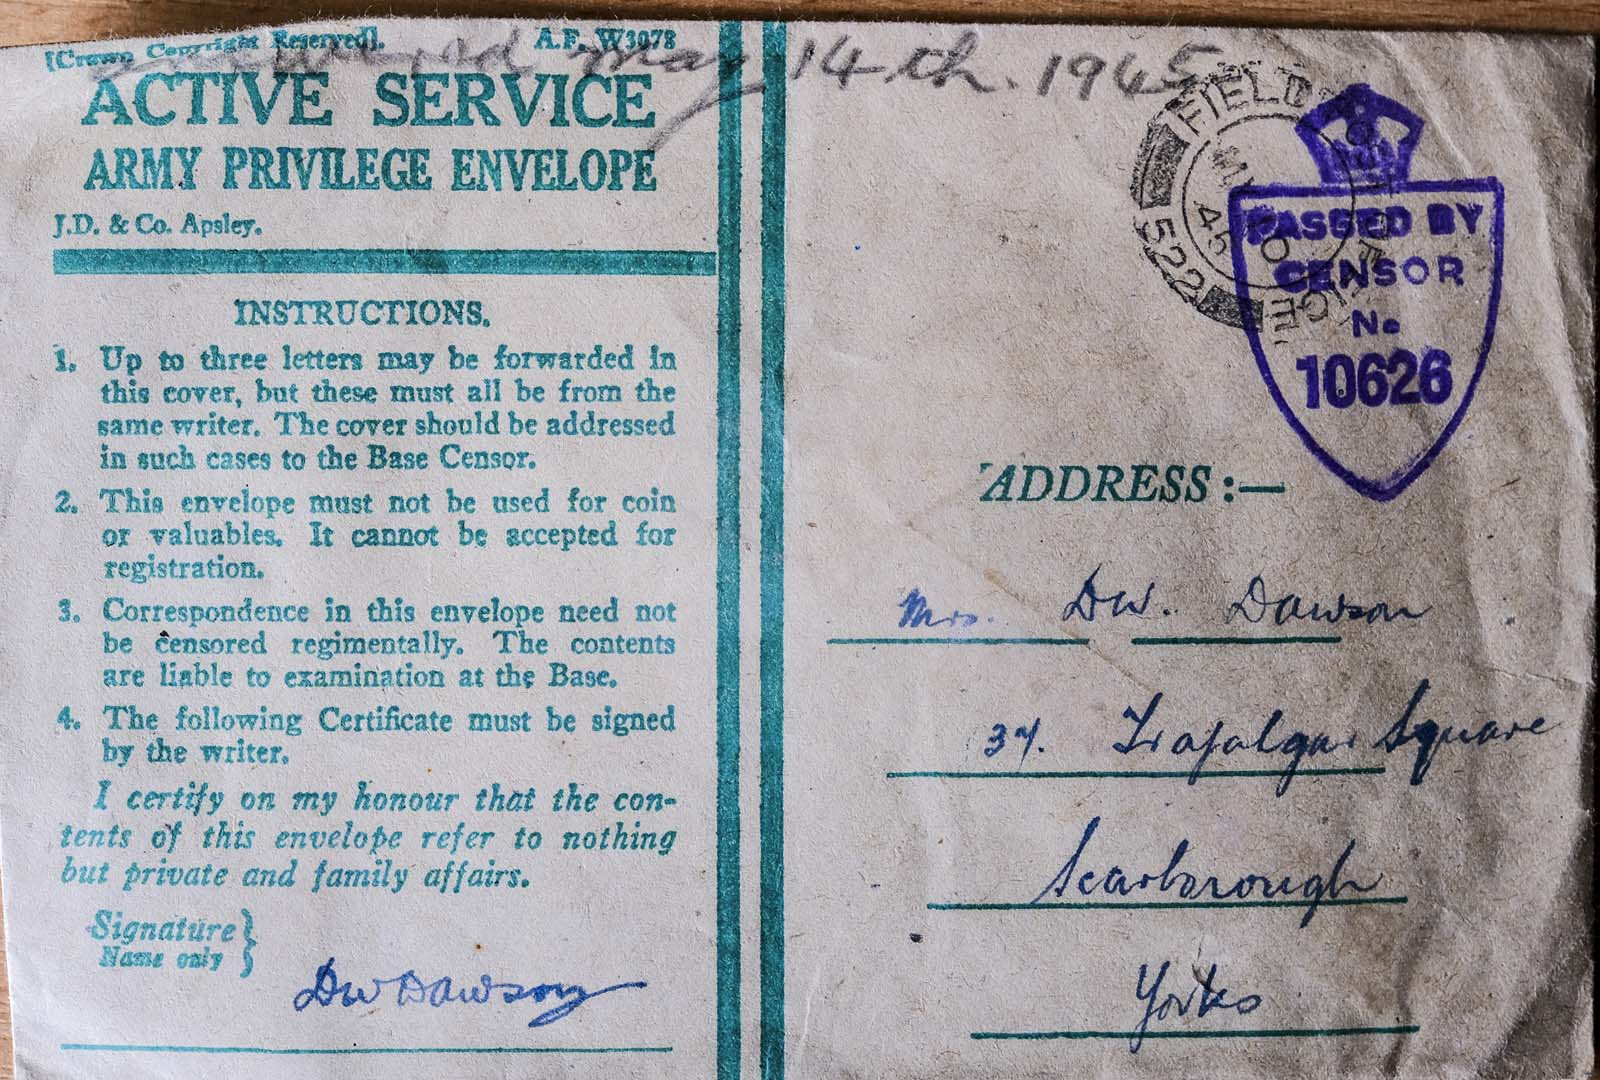 [Crown Copyright Reserved]. A.F. W3078
May 14th. 1945
ACTIVE SERVICE
ARMY PRIVILEGE ENVELOPE
J.D. & Co. Apsley.
INSTRUCTIONS.
1. Up to three letters may be forwarded in
this cover, but these must all be from the
same writer. The cover should be addressed
in such cases to the Base Censor.
2. This envelope must not be used for coin
or valuables. It cannot be accepted for
registration.
3. Correspondence in this envelope need not
be censored regimentally. The contents
are liable to examination at the Base.
4. The following Certificate must be signed
by the writer.
I certify on my honour that the con-
tents of this envelope refer to nothing
but private and family affairs.
Signature }
Name only }
DW Dawson
FIELD POST OFFICE
522
MY
45
PASSED BY
CENSOR
No
10626
ADDRESS :—
Mrs. DW. Dawson
37. Trafalgar Square
Scarborough
Yorks